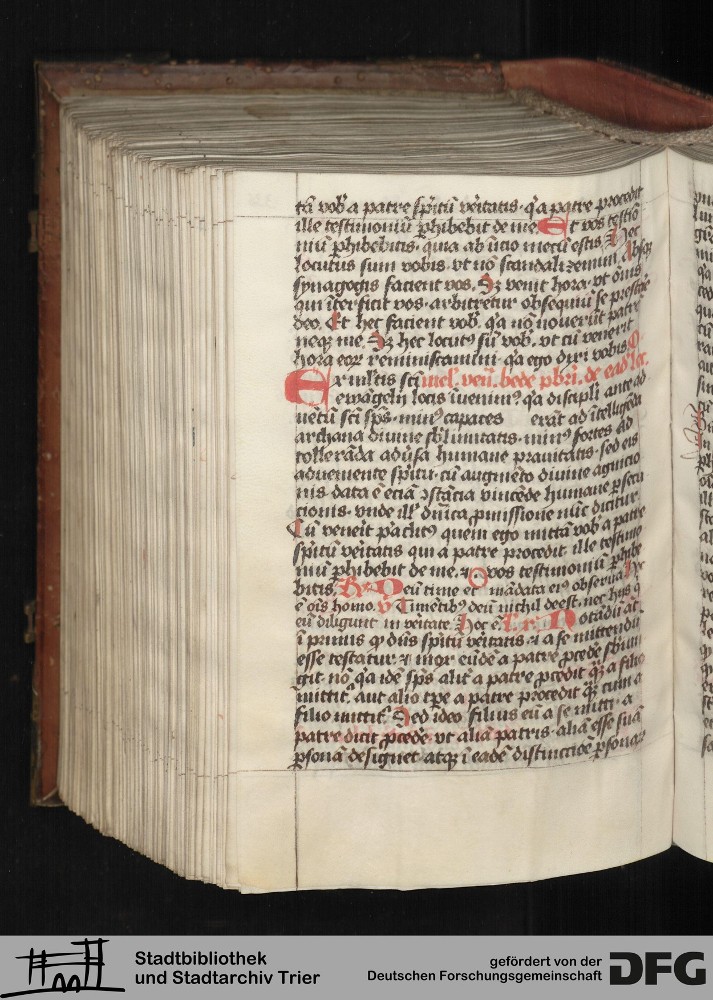 tā vob̄ a patre sp̄itū veritatis · q̄ a patre procedit
ille testimoniū ꝑhibebit de me · Et vos testiō
niū ꝑhibebitis · quia ab īicio mecū estis Hec
locutus sum vobis · vt nō scandalizemini · Absq̄
synagogis facient vos · Sꝫ venit hora · vt ōnis
qui īterficit vos · arbitretur obsequiū se prestare
deo · Et hec facient vob̄ · q̄a nō noverūt patrē
neqꝫ me · Sꝫ hec locutꝰ sū vob̄ · vt cū venerit
hora eoꝝ reminiscamini · q̄a ego dixi vobis
Ex mltis scī · ven̄ · bede pbrī · de ead̄
ewāgelii locis īvenimꝰ q̄a discipli ante ad
ventū scī sp̄s · minꝰ capaces erāt ad ītelligēda
archana divine sb̄limitatis · minꝰ fortes ad
tollerāda adv̄sa humane pravitatis · sed eis
adveniente spiritu · cū augmēto divine agnicio
nis data ē eciā ꝯstācia vincēde humane ꝑsecu
cionis · vnde ill̄ dn̄ica ꝓmissione nūc dicitur
Cū venerit paclitꝰ quem ego mittā vob̄ a patre
sp̄itū veritatis qui a patre procedit · ille testimo
niū ꝑhibebit de me · ⁊ vos testimoniū ꝑhibe
bitis · Deū time et mādata eiꝰ observa Hoc
ē oīs homo · v̄ Timētibꝰ deū nichil deest · nec hijs q̄
eū diligunt in veritate · Hoc ē Notādū
ī primis ꝙ dn̄s sp̄itū veritatis ⁊ a se mittendū
esse testatur · ⁊ mox eūdē a patre ꝓcede sbiun
git · nō q̄a idē sp̄s alit̄ a patre ꝓcedit a filio
mittit̄ · aut alio tꝑe a patre procedit cum a
filio mittit̄ · Sed ideo filius eū a se mitti · a
patre dicit ꝓcede · vt aliā patris · aliā esse suā
ꝑsonā designet · atqꝫ ī eadē distinctioe ꝑsonaꝝ
Stadtbibliothek
und Stadtarchiv Trier
gefördert von der
Deutschen Forschungsgemeinschaft
DFG